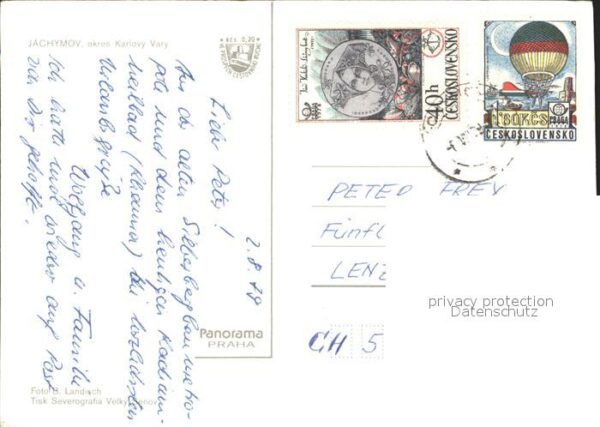 JÁCHYMOV, okres Karlovy Vary
KČS 0,30
2.8.79
Lieber Peter!
Aus der alten Silberbergbaumetro-
pole und dem heutigen Radium-
heilbad (Rheuma) die herzlichsten
Urlaubsgrüße
Wolfgang u. Familie
Ich hatte mal wieder auf Post
von Dir gehofft.
Foto B. Landisch
Tisk Severografia Velký Šenov
Panorama
PRAHA
40h
ČESKOSLOVENSKO
ČESKOSLOVENSKO
PETER FREY
Fünfl
LENZ
CH 5
privacy protection
Datenschutz